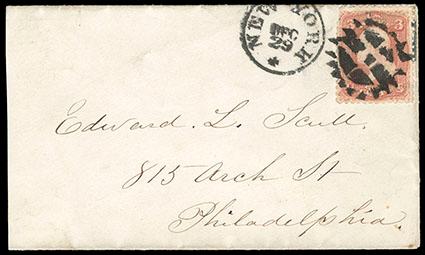 NEW YORK
3
Edward. L. Scull.
815 Arch St
Philadelphia.